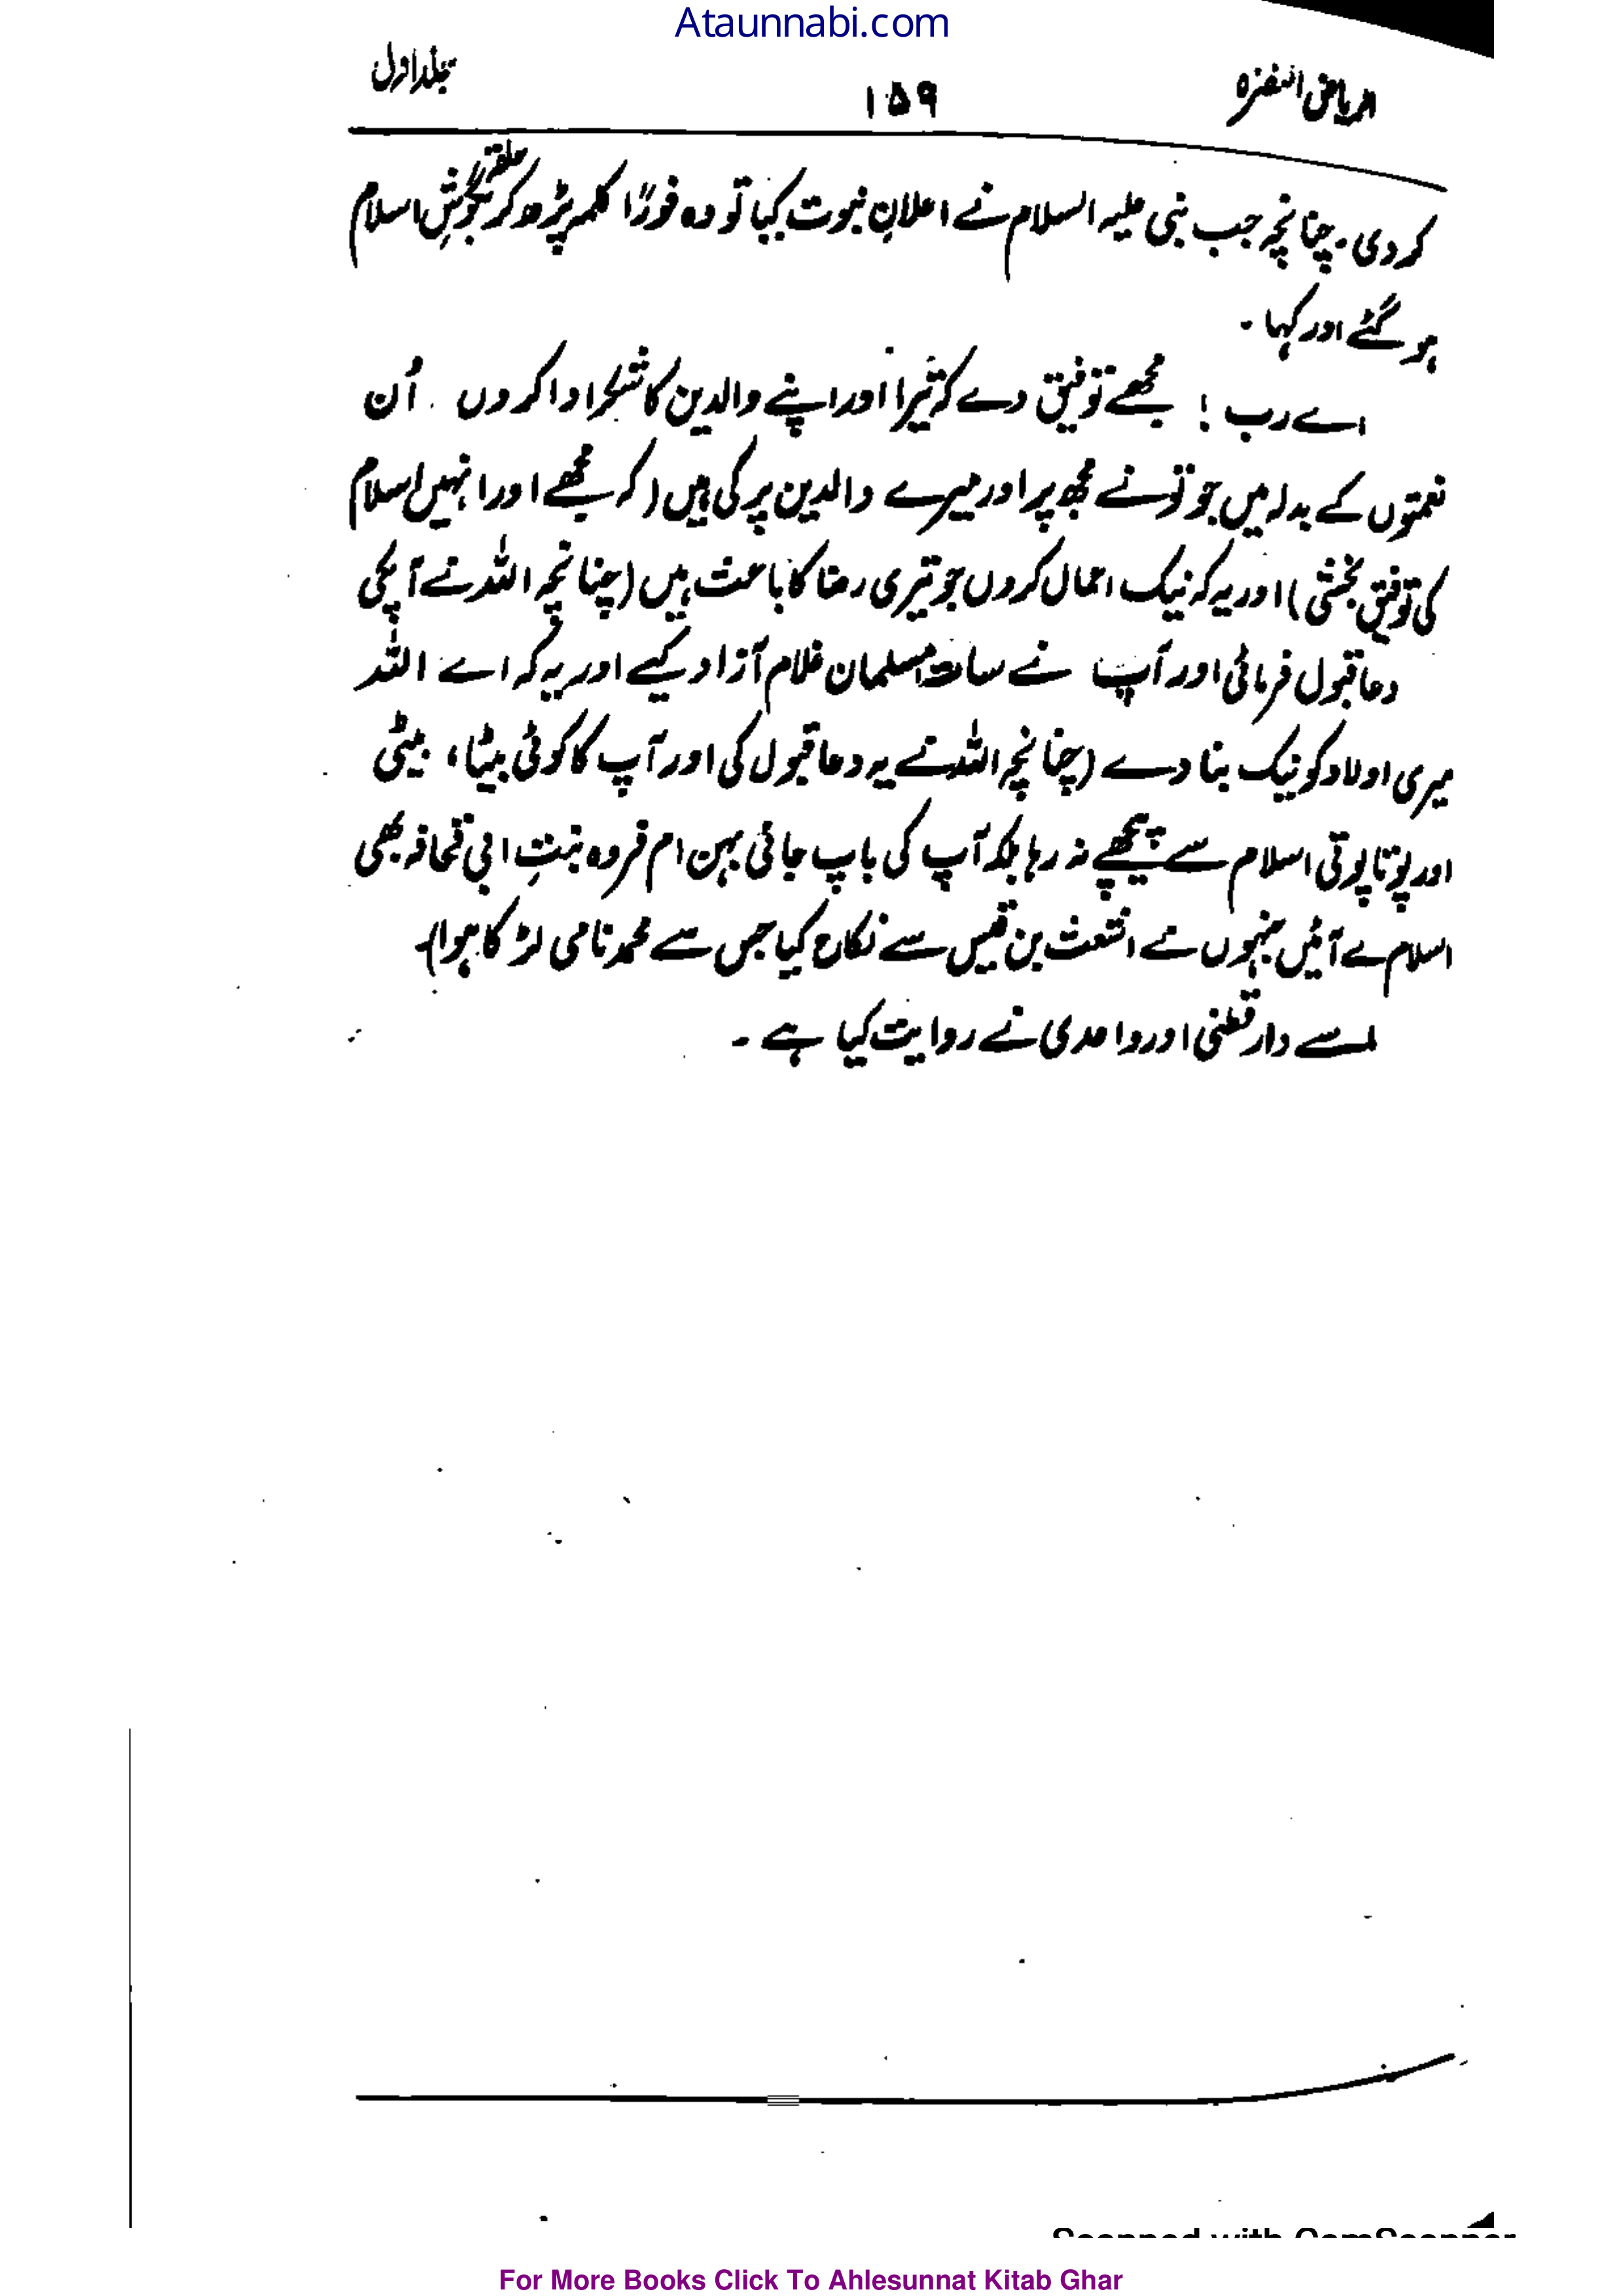 Ataunnabi.com
الریاض النضرہ ۱۵۹ جلد اول
کر دی۔ چنانچہ جب نبی علیہ السلام نے اعلانِ نبوت کیا تو وہ فورًا کلمہ پڑھ کر حلقہ بگوشِ اسلام
ہو گئے اور کہا۔
اے رب ! مجھے توفیق دے کہ تیرا اور اپنے والدین کا شکر ادا کروں اُن
نعمتوں کے بدلہ میں جو تو نے مجھ پر اور میرے والدین پر کی ہیں (کہ مجھے اور انہیں اسلام
کی توفیق بخشی) اور یہ کہ نیک اعمال کروں جو تیری رضا کا باعث ہیں (چنانچہ اللہ نے آپکی
دعا قبول فرمائی اور آپ نے سات مسلمان غلام آزاد کیے اور یہ کہ اے اللہ
میری اولاد کو نیک بنا دے (چنانچہ اللہ نے یہ دعا قبول کی اور آپ کا کوئی بیٹا، بیٹی
اور پوتا پوتی اسلام سے پیچھے نہ رہا بلکہ آپ کی باپ جائی بہن ام فروہ بنتِ ابی قحافہ بھی
اسلام لے آئیں جنہوں نے اشعث بن قیس سے نکاح کیا جس سے محمد نامی لڑکا ہوا)۔
اسے دار قطنی اور واحدی نے روایت کیا ہے۔
Scanned with CamScanner
For More Books Click To Ahlesunnat Kitab Ghar